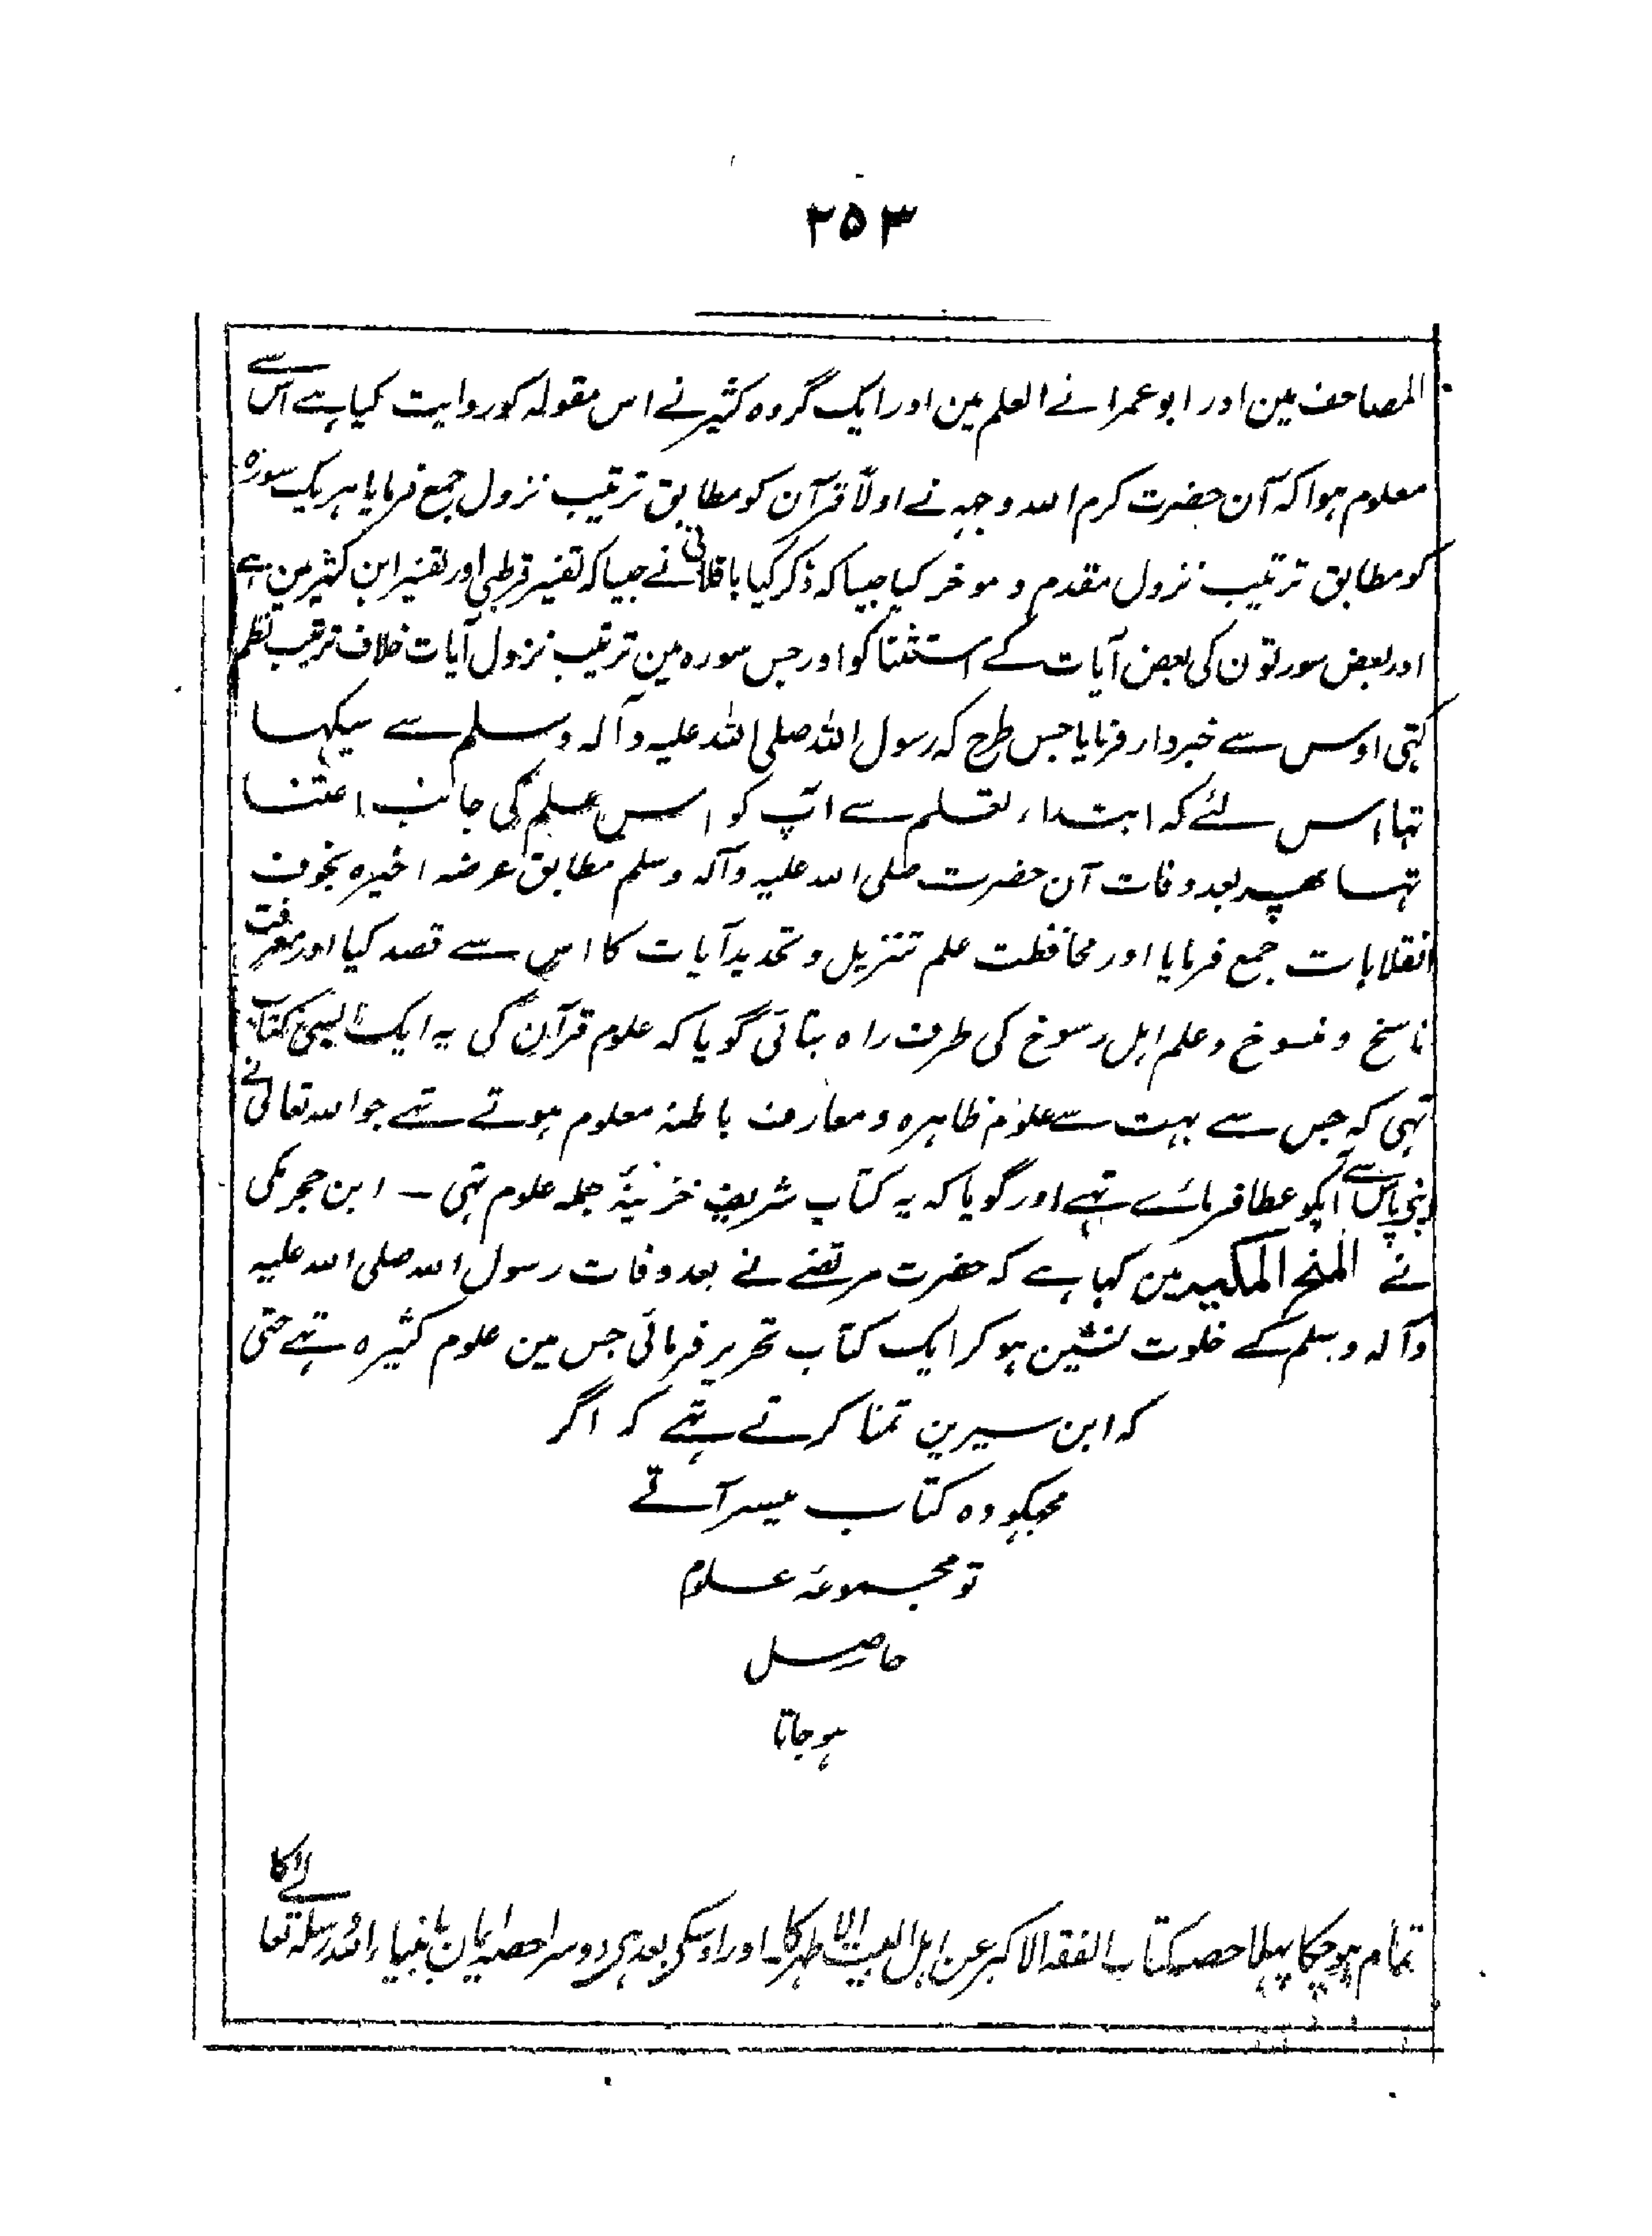 ۲۵۳
المصاحف مین اور ابو عمرا نے العلم مین اور ایک گروہ کثیر نے اس مقولہ کو روایت کیا ہے اس سے
معلوم ہوا کہ آن حضرت کرم اللہ وجہہ نے اولاً قرآن کو مطابق ترتیب نزول جمع فرمایا ہر یک سورہ
کو مطابق ترتیب نزول مقدم و موخر کیا جیسا کہ ذکر کیا باقلانی نے جیسا کہ تفسیر قرطبی اور تفسیر ابن کثیر مین ہے
اور بعض سورتون کی بعض آیات کے استثنا کو اور جس سورہ مین ترتیب نزول آیات خلاف ترتیب نظم
کتبی اوس سے خبردار فرمایا جس طرح کہ رسول اللہ صلی اللہ علیہ وآلہ وسلم سے سیکہا
تہا اس لئے کہ ابتداء تعلم سے آپ کو اس علم کی جانب اعتنا
تہا پھر بعد وفات آن حضرت صلی اللہ علیہ وآلہ وسلم مطابق عرضہ اخیرہ بخوف
انقلابات جمع فرمایا اور محافظت علم تنزیل و تحدید آیات کا اس سے قصد کیا اور معرفت
ناسخ و منسوخ و علم اہل رسوخ کی طرف راہ بتائی گویا کہ علوم قرآن کی یہ ایک ایسی کتاب
تہی کہ جس سے بہت سے علوم ظاہرہ و معارف باطنہ معلوم ہوتے تہے جو اللہ تعالیٰ نے
اپنی پاس سے آپکو عطا فرمائے تہے اور گویا کہ یہ کتاب شریف خزینۂ جملہ علوم تہی ۔ ابن حجر مکی
نے المنح المکیہ مین کہا ہے کہ حضرت مرتضے نے بعد وفات رسول اللہ صلی اللہ علیہ
وآلہ وسلم کے خلوت نشین ہو کر ایک کتاب تحریر فرمائی جس مین علوم کثیرہ تہے حتی
کہ ابن سیرین تمنا کرتے تہے کہ اگر
مجکہو وہ کتاب میسر آتے
تو مجموعۂ علوم
حاصل
ہو جاتا
تمام ہو چکا پہلا حصہ کتاب الفقہ الاکبر عن اہل البیت الاطہر کا۔ اور اوسکی بعد ہی دوسرا حصہ ایمان بانبیاء اللہ و رسلہ تعالے کا